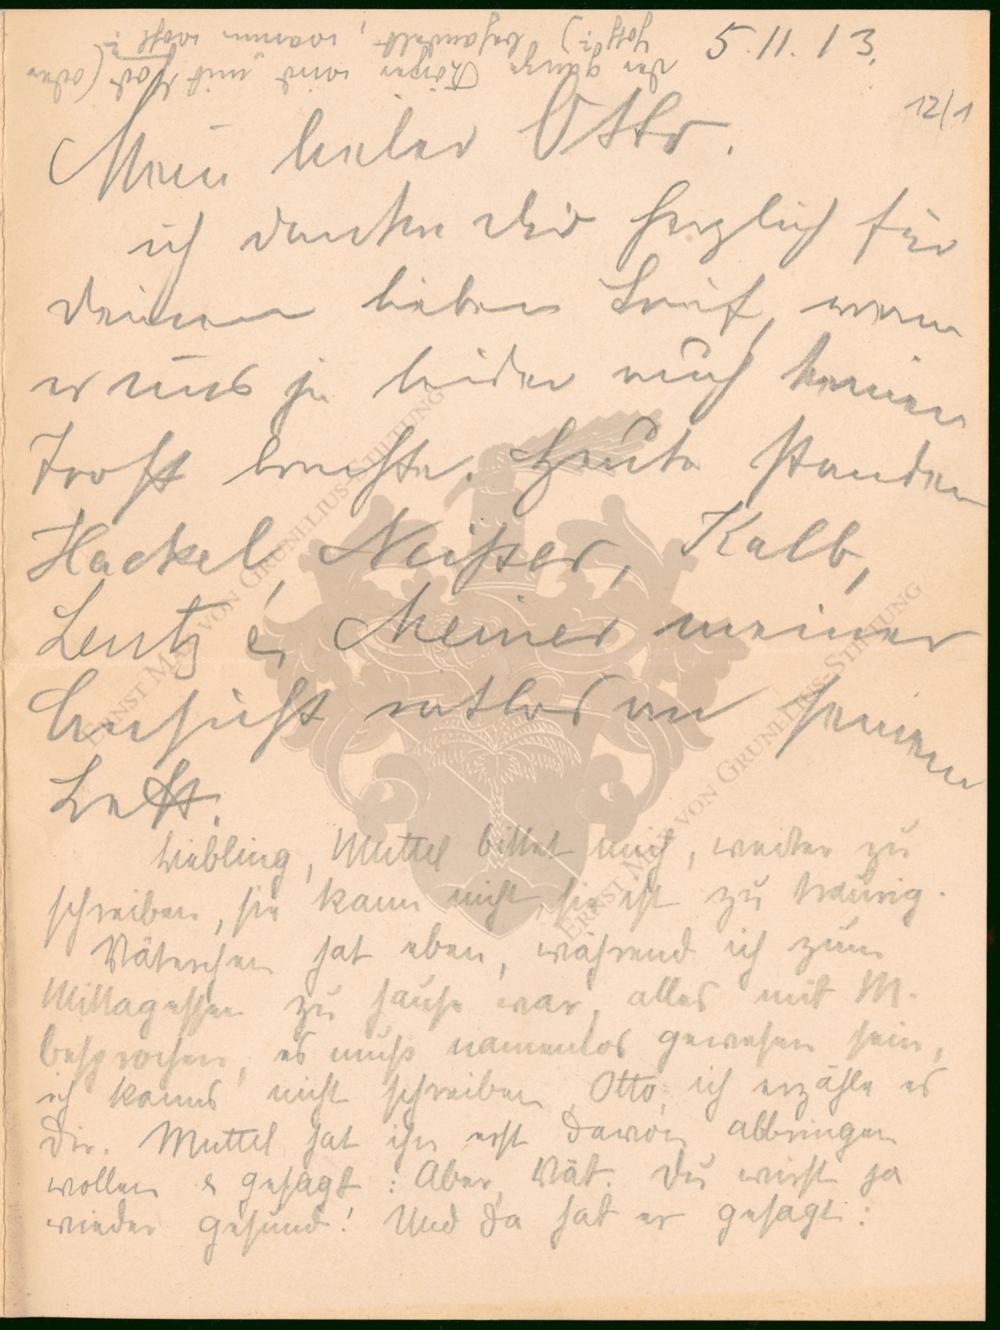 der ganze Körper wird mit Jod (oder
Joth?) behandelt, warum wohl?
5.11.13.
12/1
Mein lieber Otto.
ich danke dir herzlich für
deinen lieben Brief, wenn
er uns ja leider auch keinen
Trost brachte. Heute standen
Hackel, Neisser, Kalb,
Lentz & Meiner meiner
Ansicht ratlos an seinem
Bett.
Liebling, Muttel bittet mich, weiter zu
schreiben, sie kann nicht, sie ist zu traurig.
Väterchen hat eben, während ich zum
Mittagessen zu Hause war, alles mit M.
besprochen, es muss namenlos gewesen sein,
ich kanns nicht schreiben, Otto, ich erzähle es
Dir. Muttel hat ihn erst davon abbringen
wollen & gesagt: Aber, Vät. Du wirst ja
wieder gesund! Und da hat er gesagt:
ERNST MAX VON GRUNELIUS-STIFTUNG
ERNST MAX VON GRUNELIUS-STIFTUNG